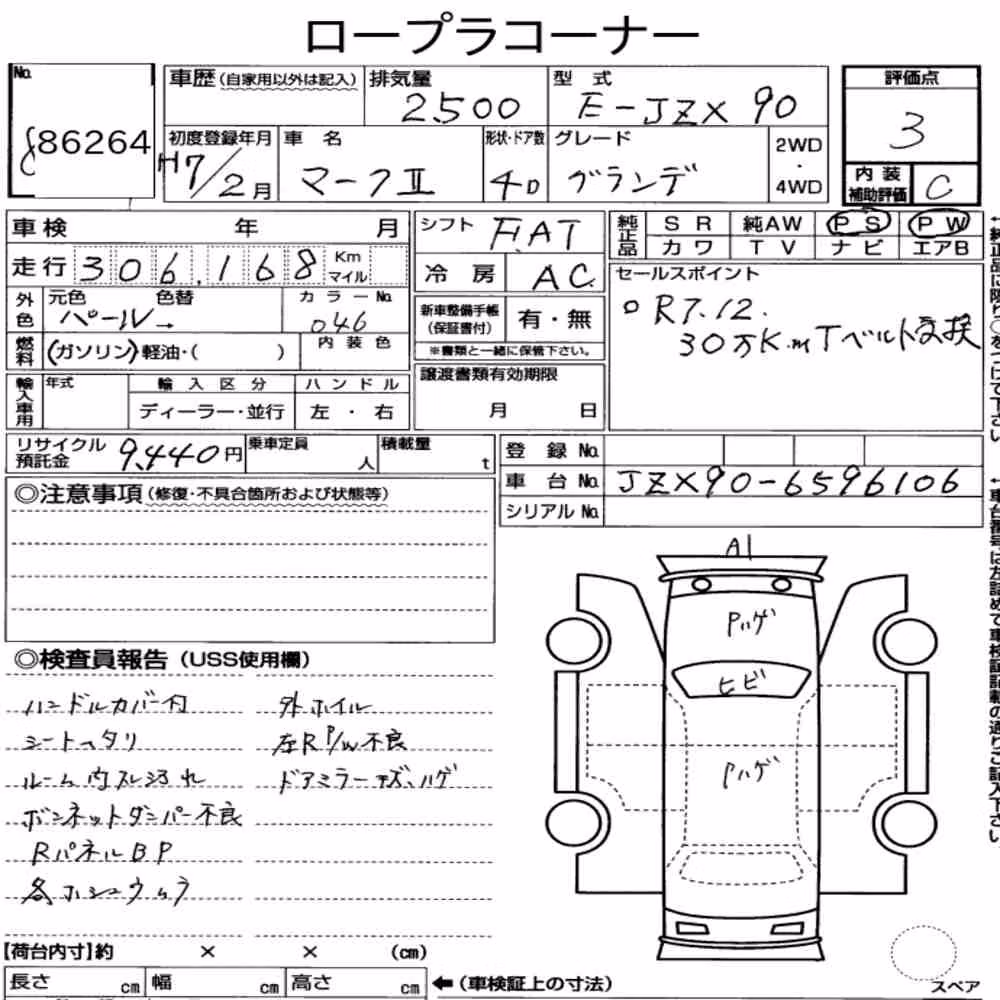 ロープラコーナー
No.
86264
車歴 (自家用以外は記入)
排気量
2500
型式
E-JZX 90
評価点
3
初度登録年月
H7/2月
車名
マークⅡ
形状・ドア数
4D
グレード
グランデ
2WD
・
4WD
内装
補助評価
C
車検 年 月
走行 306,168 Km
マイル
外色
元色 色替
パール→
カラーNo.
046
燃料
(ガソリン)軽油・( )
内装色
輸入車用
年式
輸入区分
ディーラー・並行
ハンドル
左・右
シフト
FAT
冷房
AC
新車整備手帳
(保証書付)
有・無
※書類と一緒に保管下さい。
譲渡書類有効期限
月 日
純正品
SR 純AW PS PW
カワ TV ナビ エアB
セールスポイント
○R7.12.
30万K.m Tベルト交換
リサイクル
預託金
9,440円
乗車定員
人
積載量
t
登録No.
車台No.
JZX90-6596106
シリアルNo.
◎注意事項(修復・不具合箇所および状態等)
◎検査員報告(USS使用欄)
ハンドルカバー付
シートヘタリ
ルーム内スレ汚れ
ボンネットダンパー不良
RパネルBP
各ホシュウムラ
外ホイル
左R P/W不良
ドアミラーキズ、ハゲ
A1
Pハゲ
ヒビ
Pハゲ
【荷台内寸】約 × × (cm)
長さ cm 幅 cm 高さ cm
←(車検証上の寸法)
スペア
←純正品に限り○をつけて下さい。
←車台番号は左詰めで車検証記載の通りご記入下さい。